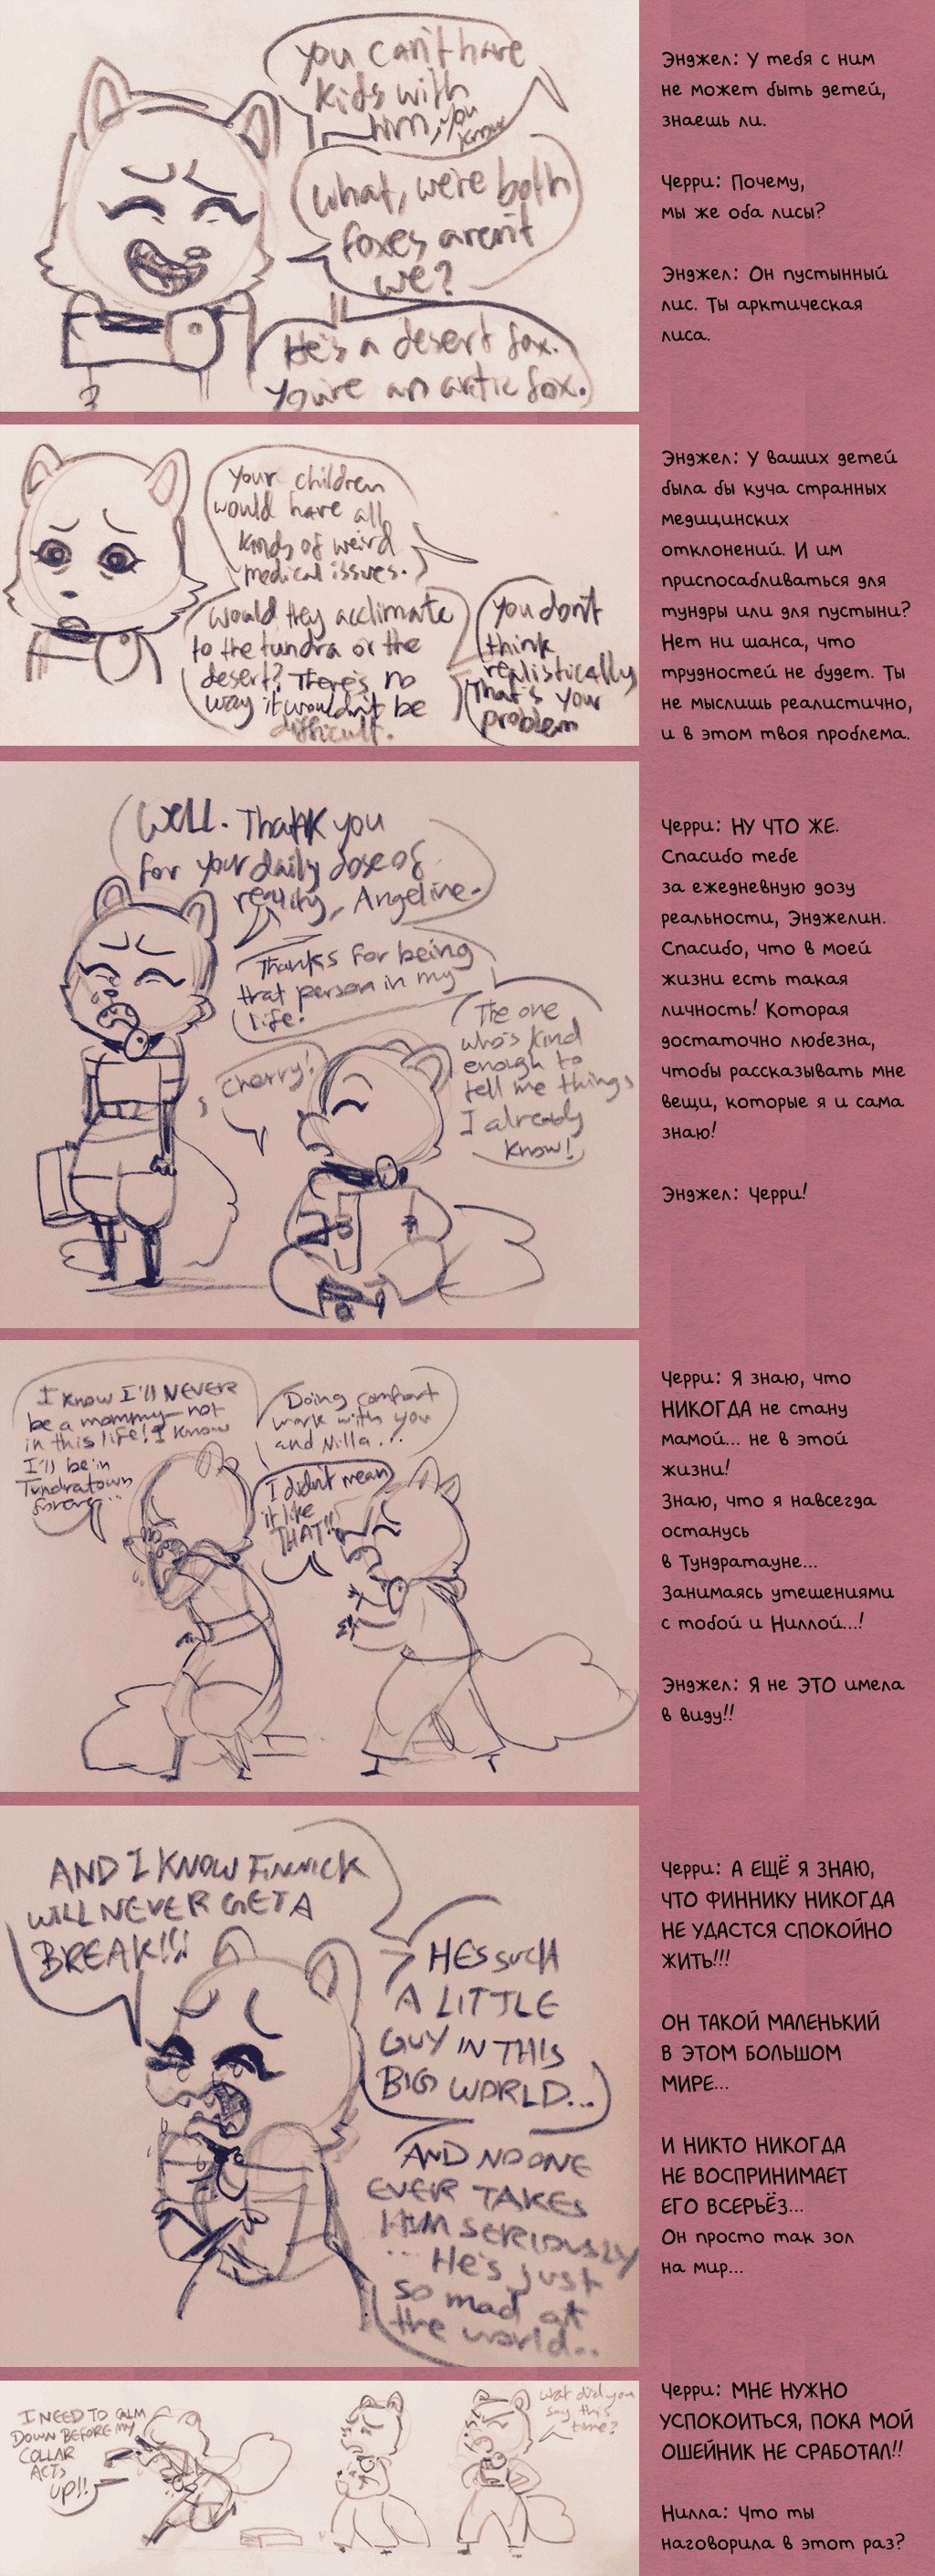 you can't have
kids with
him, you
know
Энджел: У тебя с ним
не может быть детей,
знаешь ли.
what, we're both
foxes aren't
we?
Черри: Почему,
мы же оба лисы?
He's a desert fox.
You're an artic fox.
Энджел: Он пустынный
лис. Ты арктическая
лиса.
Your children
would have all
kinds of weird
medical issues.
would they acclimate
to the tundra or the
desert? There's no
way it wouldn't be
difficult.
you don't
think
realistically
That's your
problem
Энджел: У ваших детей
была бы куча странных
медицинских
отклонений. И им
приспосабливаться для
тундры или для пустыни?
Нет ни шанса, что
трудностей не будет. Ты
не мыслишь реалистично,
и в этом твоя проблема.
Well. Thank you
for your daily dose of
reality, Angeline.
Thanks for being
that person in my
life!
The one
who's kind
enough to
tell me things
I already
know!
cherry!
Черри: НУ ЧТО ЖЕ.
Спасибо тебе
за ежедневную дозу
реальности, Энджелин.
Спасибо, что в моей
жизни есть такая
личность! Которая
достаточно любезна,
чтобы рассказывать мне
вещи, которые я и сама
знаю!
Энджел: Черри!
I know I'll NEVER
be a mommy—not
in this life! I know
I'll be in
Tundratown
forever...
Doing comfort
work with you
and Nilla...!
I didn't mean
it like
THAT!!
Черри: Я знаю, что
НИКОГДА не стану
мамой... не в этой
жизни!
Знаю, что я навсегда
останусь
в Тундратауне...
Занимаясь утешениями
с тобой и Ниллой...!
Энджел: Я не ЭТО имела
в виду!!
AND I KNOW FINNICK
WILL NEVER GET A
BREAK!!!
HE'S SUCH
A LITTLE
GUY IN THIS
BIG WORLD...
AND NO ONE
EVER TAKES
HIM SERIOUSLY
... He's just
so mad at
the world...
Черри: А ЕЩЁ Я ЗНАЮ,
ЧТО ФИННИКУ НИКОГДА
НЕ УДАСТСЯ СПОКОЙНО
ЖИТЬ!!!
ОН ТАКОЙ МАЛЕНЬКИЙ
В ЭТОМ БОЛЬШОМ
МИРЕ...
И НИКТО НИКОГДА
НЕ ВОСПРИНИМАЕТ
ЕГО ВСЕРЬЁЗ...
Он просто так зол
на мир...
I NEED TO CALM
DOWN BEFORE MY
COLLAR
ACTS
UP!!
wat did you
say this
time?
Черри: МНЕ НУЖНО
УСПОКОИТЬСЯ, ПОКА МОЙ
ОШЕЙНИК НЕ СРАБОТАЛ!!
Нилла: Что ты
наговорила в этот раз?